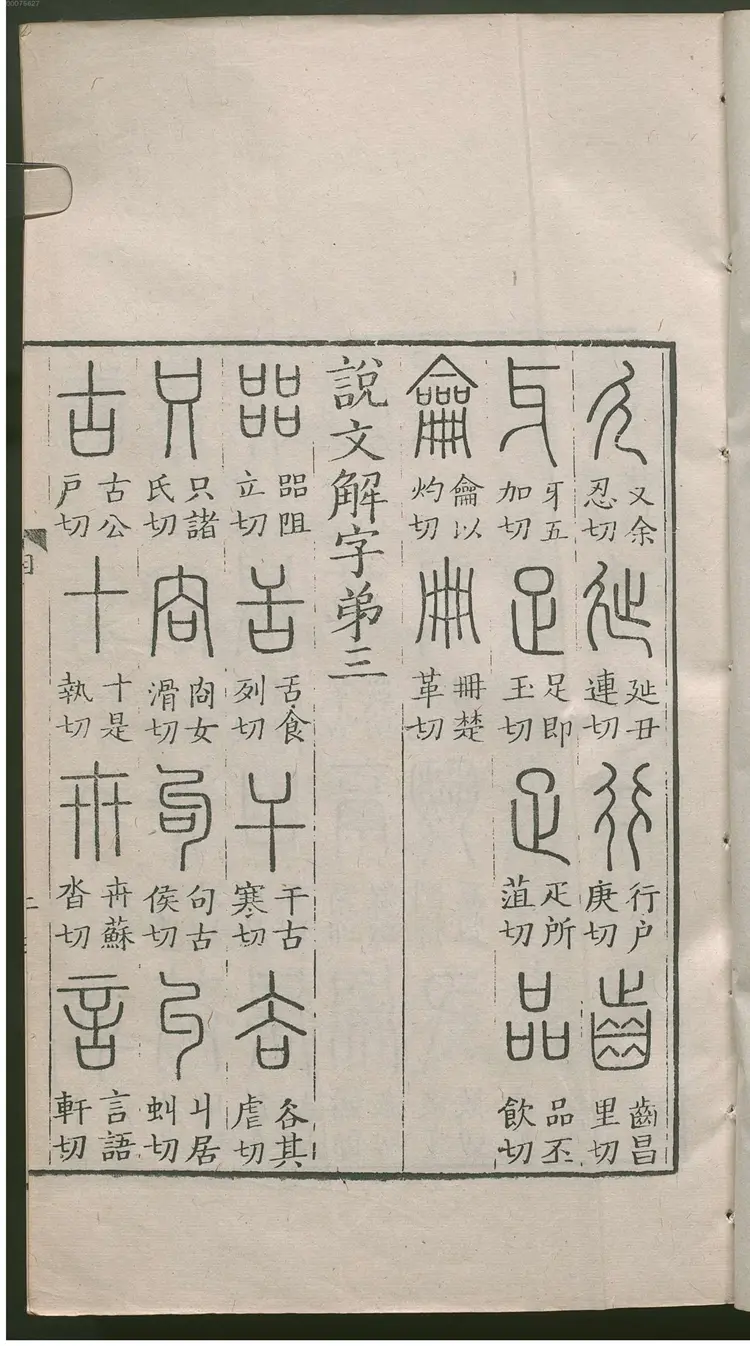 00075627
廴 廴余忍切 㢟 㢟丑連切 行 行户庚切 齒 齒昌里切
牙 牙五加切 足 足即玉切 疋 疋所菹切 品 品丕飲切
龠 龠以灼切 冊 冊楚革切
說文解字弟三
㗊 㗊阻立切 舌 舌食列切 干 干古寒切 𧮫 𧮫其虐切
只 只諸氏切 㕯 㕯女滑切 句 句古侯切 丩 丩居虯切
古 古公戶切 十 十是執切 卅 卅蘇沓切 言 言語軒切